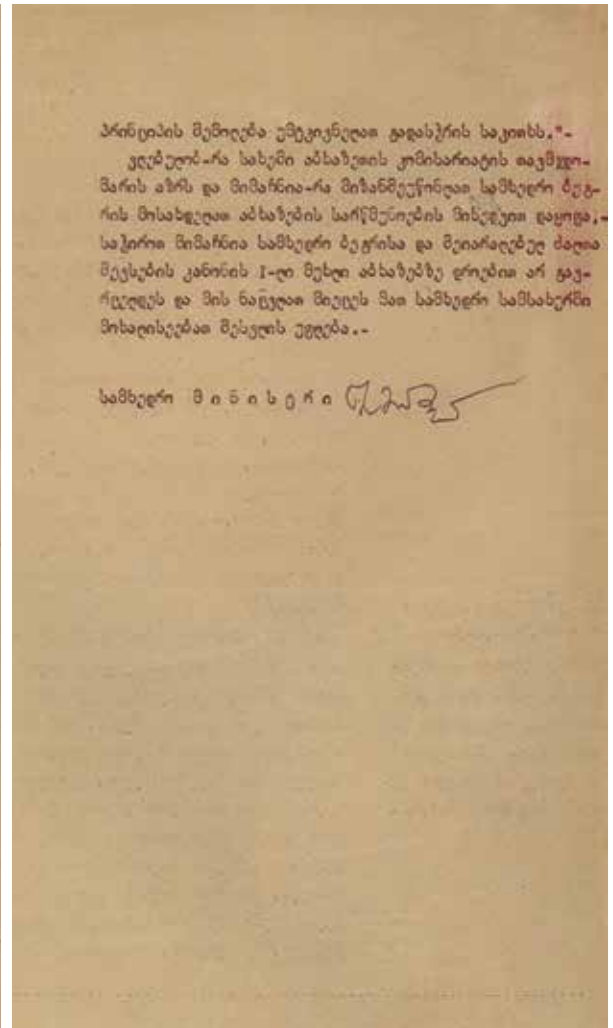 პრინციპის შემოღება უმტკივნეღათ გადასჭრის საკითხს."-
ვღებულობ-რა სახეში აბხაზეთის კომისარიატის თავმჯდო-
მარის აზრს და მიმაჩნია-რა მიზანშეუწონლათ სამხედრო ბეგ-
რის მოსახდელათ აბხაზების სარწმუნოების მიხედვით დაყოფა,-
საჭიროთ მიმაჩნია სამხედრო ბეგრისა და შეიარაღებულ ძალთა
შევსების კანონის I-ლი მუხლი აბხაზებზე დროებით არ გავ-
რცელდეს და მის ნაცვლათ მიეცეს მათ სამხედრო სამსახურში
მოხალისეებათ შესვლის უფლება.-
სამხედრო მ ი ნ ი ს ტ რ ი